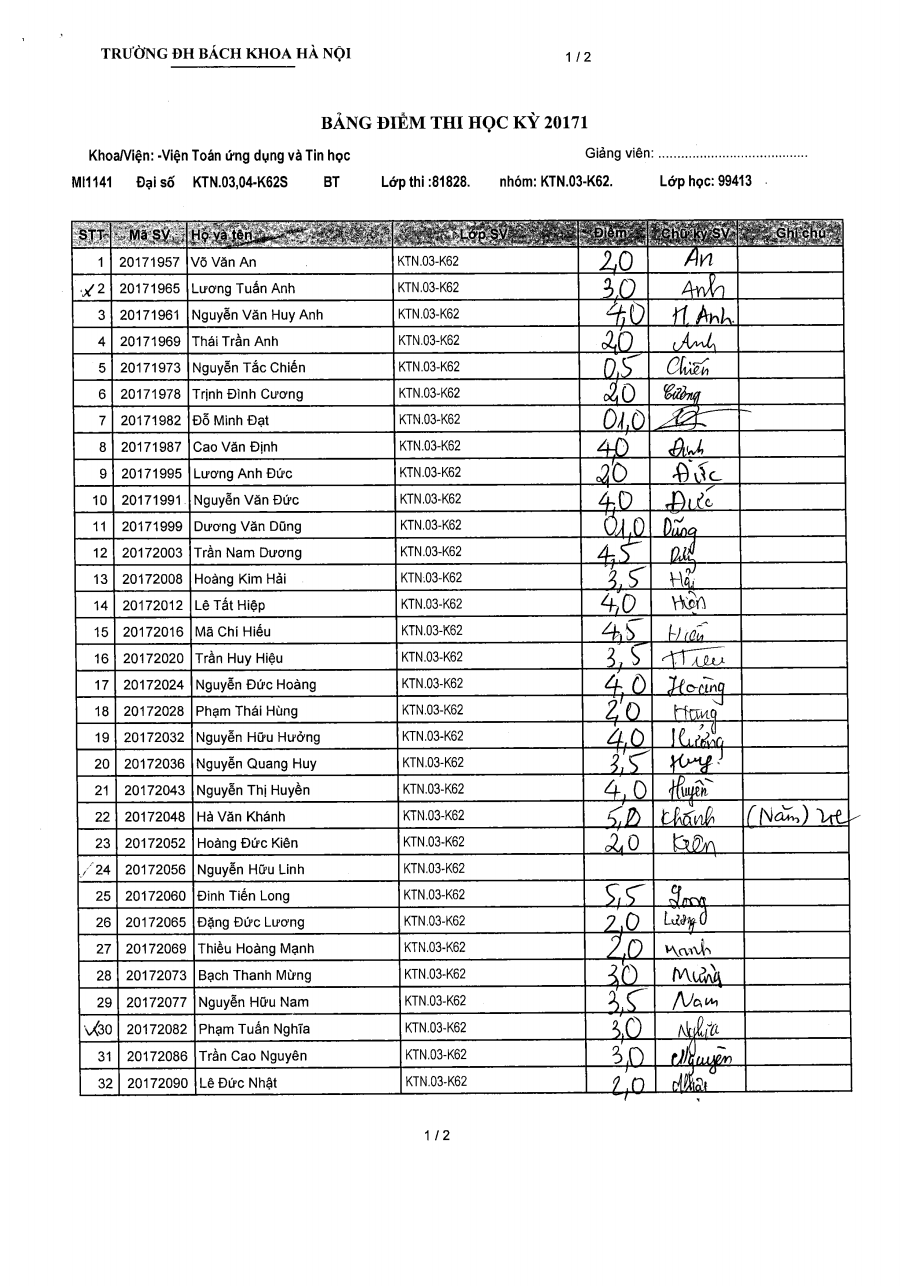 TRƯỜNG ĐH BÁCH KHOA HÀ NỘI
1 / 2
BẢNG ĐIỂM THI HỌC KỲ 20171
Khoa/Viện: -Viện Toán ứng dụng và Tin học Giảng viên: ........................................
MI1141 Đại số KTN.03,04-K62S BT Lớp thi :81828. nhóm: KTN.03-K62. Lớp học: 99413
STT Mã SV Họ và tên Lớp SV Điểm Chữ ký SV Ghi chú
1 20171957 Võ Văn An KTN.03-K62 2,0 An
x 2 20171965 Lương Tuấn Anh KTN.03-K62 3,0 Anh
3 20171961 Nguyễn Văn Huy Anh KTN.03-K62 4,0 H. Anh.
4 20171969 Thái Trần Anh KTN.03-K62 2,0 Anh
5 20171973 Nguyễn Tắc Chiến KTN.03-K62 0,5 Chiến
6 20171978 Trịnh Đình Cương KTN.03-K62 2,0 Cường
7 20171982 Đỗ Minh Đạt KTN.03-K62 01,0
8 20171987 Cao Văn Định KTN.03-K62 4,0 Định
9 20171995 Lương Anh Đức KTN.03-K62 2,0 Đức
10 20171991 Nguyễn Văn Đức KTN.03-K62 4,0 Đức
11 20171999 Dương Văn Dũng KTN.03-K62 01,0 Dũng
12 20172003 Trần Nam Dương KTN.03-K62 4,5
13 20172008 Hoàng Kim Hải KTN.03-K62 3,5 Hải
14 20172012 Lê Tất Hiệp KTN.03-K62 4,0 Hiệp
15 20172016 Mã Chí Hiếu KTN.03-K62 4,5 Hiếu
16 20172020 Trần Huy Hiệu KTN.03-K62 3,5 Hiệu
17 20172024 Nguyễn Đức Hoàng KTN.03-K62 4,0 Hoàng
18 20172028 Phạm Thái Hùng KTN.03-K62 2,0 Hùng
19 20172032 Nguyễn Hữu Hưởng KTN.03-K62 4,0 Hưởng
20 20172036 Nguyễn Quang Huy KTN.03-K62 3,5 Huy
21 20172043 Nguyễn Thị Huyền KTN.03-K62 4,0 Huyền
22 20172048 Hà Văn Khánh KTN.03-K62 5,0 Khánh (Năm)
23 20172052 Hoàng Đức Kiên KTN.03-K62 2,0 Kiên
24 20172056 Nguyễn Hữu Linh KTN.03-K62
25 20172060 Đinh Tiến Long KTN.03-K62 5,5 Long
26 20172065 Đặng Đức Lương KTN.03-K62 2,0 Lương
27 20172069 Thiều Hoàng Mạnh KTN.03-K62 2,0 Mạnh
28 20172073 Bạch Thanh Mừng KTN.03-K62 3,0 Mừng
29 20172077 Nguyễn Hữu Nam KTN.03-K62 3,5 Nam
30 20172082 Phạm Tuấn Nghĩa KTN.03-K62 3,0 Nghĩa
31 20172086 Trần Cao Nguyên KTN.03-K62 3,0 Nguyên
32 20172090 Lê Đức Nhật KTN.03-K62 2,0 Nhật
1 / 2